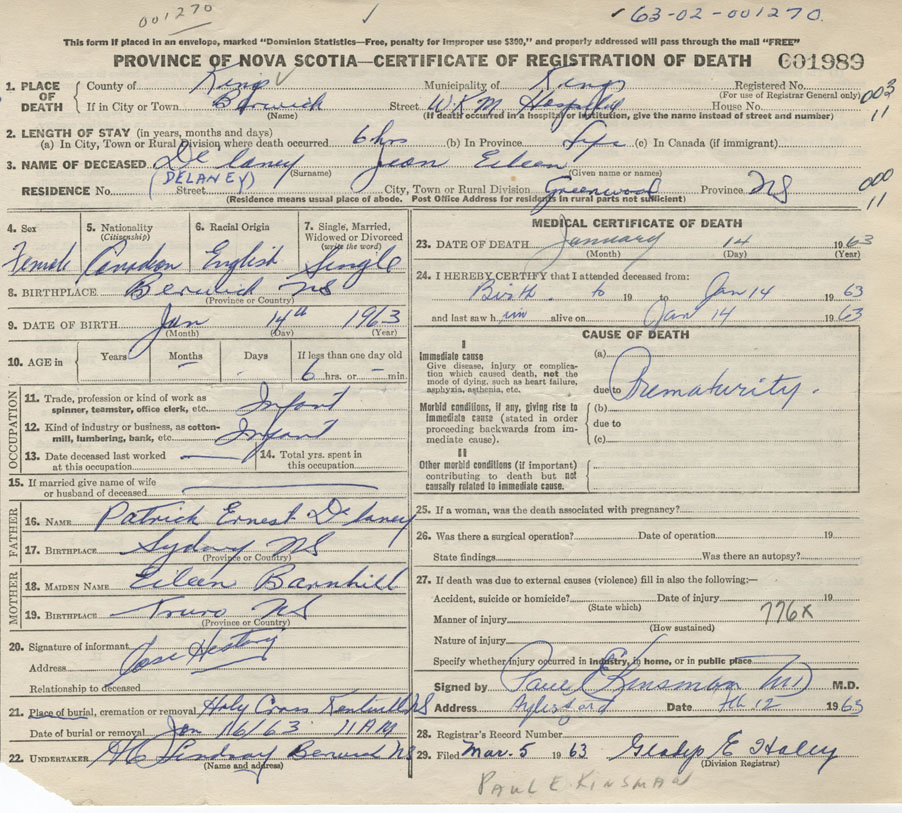 001270
✓63-02-001270
This form if placed in an envelope, marked "Dominion Statistics—Free, penalty for improper use $300," and properly addressed will pass through the mail "FREE"
PROVINCE OF NOVA SCOTIA—CERTIFICATE OF REGISTRATION OF DEATH 001989
1. PLACE OF DEATH
County of Kings Municipality of Kings Registered No. (For use of Registrar General only) 003
If in City or Town Berwick (Name) Street W.K.M. Hospital House No. 11
(If death occurred in a hospital or institution, give the name instead of street and number)
2. LENGTH OF STAY (in years, months and days)
(a) In City, Town or Rural Division where death occurred 6 hrs (b) In Province Life (c) In Canada (if immigrant)
3. NAME OF DECEASED De laney (Surname) Jean Eileen (Given name or names)
(DELANEY)
RESIDENCE No. Street City, Town or Rural Division Greenwood Province NS 000 11
(Residence means usual place of abode. Post Office Address for residents in rural parts not sufficient)
4. Sex 5. Nationality (Citizenship) 6. Racial Origin 7. Single, Married, Widowed or Divorced (write the word)
Female Canadian English Single
8. BIRTHPLACE Berwick NS
(Province or Country)
9. DATE OF BIRTH Jan 14th 1963
(Month) (Day) (Year)
10. AGE in Years Months Days If less than one day old
6 hrs. or – min.
OCCUPATION
11. Trade, profession or kind of work as spinner, teamster, office clerk, etc. Infant
12. Kind of industry or business, as cotton-mill, lumbering, bank, etc. Infant
13. Date deceased last worked at this occupation 14. Total yrs. spent in this occupation
15. If married give name of wife or husband of deceased
FATHER
16. NAME Patrick Ernest De laney
17. BIRTHPLACE Sydney NS
(Province or Country)
MOTHER
18. MAIDEN NAME Eileen Barnhill
19. BIRTHPLACE Truro NS
(Province or Country)
20. Signature of informant
Address
Relationship to deceased
21. Place of burial, cremation or removal Holy Cross Kentville NS
Date of burial or removal Jan 16/63 11 AM
22. UNDERTAKER Lindsay Berwick NS
(Name and address)
MEDICAL CERTIFICATE OF DEATH
23. DATE OF DEATH January 14 1963
(Month) (Day) (Year)
24. I HEREBY CERTIFY that I attended deceased from:
Birth to 19 to Jan 14 1963
and last saw him alive on Jan 14 1963
CAUSE OF DEATH
I
Immediate cause
Give disease, injury or complication which caused death, not the mode of dying, such as heart failure, asphyxia, asthenia, etc.
(a)
due to Prematurity.
Morbid conditions, if any, giving rise to immediate cause (stated in order proceeding backwards from immediate cause).
(b)
due to
(c)
II
Other morbid conditions (if important) contributing to death but not causally related to immediate cause.
25. If a woman, was the death associated with pregnancy?
26. Was there a surgical operation? Date of operation 19
State findings Was there an autopsy?
27. If death was due to external causes (violence) fill in also the following:—
Accident, suicide or homicide? Date of injury 19
(State which)
Manner of injury 776X
(How sustained)
Nature of injury
Specify whether injury occurred in industry, in home, or in public place
Signed by Paul E Kinsman MD M.D.
Address Aylesford Date Feb 12 1963
28. Registrar's Record Number
29. Filed Mar. 5 1963 Gladys E Haley
(Division Registrar)
PAUL E KINSMAN